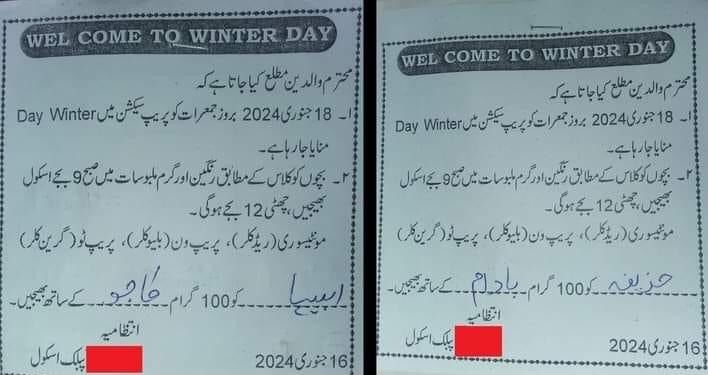 WEL COME TO WINTER DAY
محترم والدین مطلع کیا جاتا ہے کہ
۱۔ 18 جنوری 2024 بروز جمعرات کو پریپ سیکشن میں Day Winter
منایا جا رہا ہے۔
۲۔ بچوں کو کلاس کے مطابق رنگین اور گرم ملبوسات میں صبح 9 بجے اسکول
بھیجیں، چھٹی 12 بجے ہوگی۔
مونٹیسوری (ریڈ کلر)، پریپ ون (بلیو کلر)، پریپ ٹو (گرین کلر)
کو 100 گرام کاجو کے ساتھ بھیجیں۔
انتظامیہ
پبلک اسکول
16 جنوری 2024
WEL COME TO WINTER DAY
محترم والدین مطلع کیا جاتا ہے کہ
۱۔ 18 جنوری 2024 بروز جمعرات کو پریپ سیکشن میں Day Winter
منایا جا رہا ہے۔
۲۔ بچوں کو کلاس کے مطابق رنگین اور گرم ملبوسات میں صبح 9 بجے اسکول
بھیجیں، چھٹی 12 بجے ہوگی۔
مونٹیسوری (ریڈ کلر)، پریپ ون (بلیو کلر)، پریپ ٹو (گرین کلر)
حذیفہ کو 100 گرام بادام کے ساتھ بھیجیں۔
انتظامیہ
پبلک اسکول
16 جنوری 2024